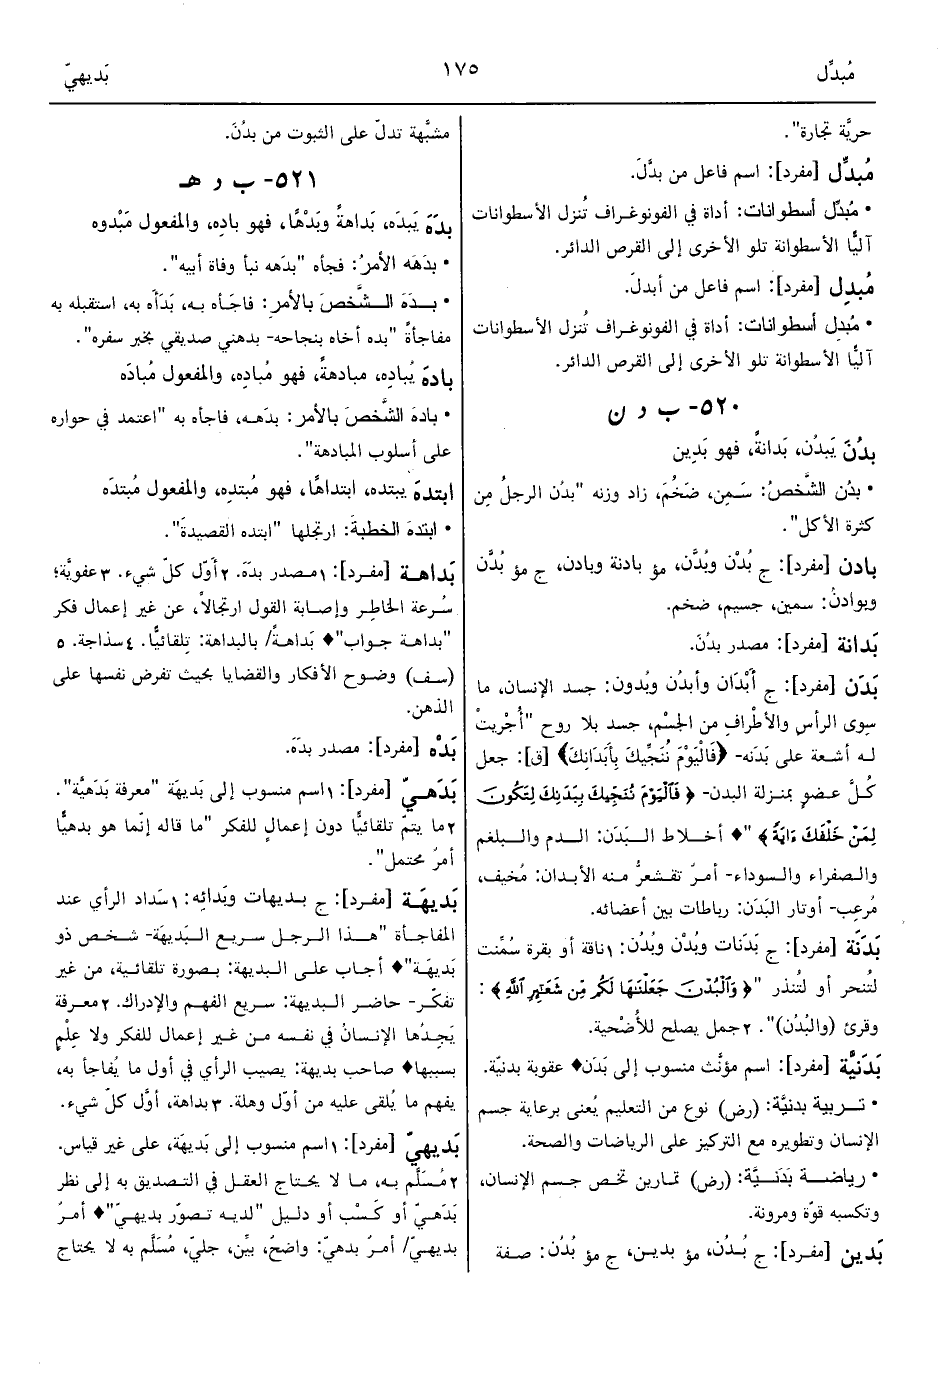 مُبدِّل
١٧٥
بَديهيّ
حريَّة تجارة".
مُبدِّل [مفرد]: اسم فاعل من بدَّلَ.
• مُبدِّل أسطوانات: أداة في الفونوغراف تُنزل الأسطوانات
آليًّا الأسطوانة تلو الأخرى إلى القرص الدائر.
مُبدِل [مفرد]: اسم فاعل من أبدلَ.
• مُبدِل أسطوانات: أداة في الفونوغراف تُنزل الأسطوانات
آليًّا الأسطوانة تلو الأخرى إلى القرص الدائر.
٥٢٠- ب د ن
بدُنَ يَبدُن، بَدانةً، فهو بَدِين
• بدُن الشَّخصُ: سَمِن، ضَخُمَ، زاد وزنه "بدُن الرجلُ مِن
كثرة الأكل".
بادن [مفرد]: ج بُدْن وبُدَّن، مؤ بادنة وبادن، ج مؤ بُدَّن
وبوادنُ: سمين، جسيم، ضخم.
بَدانة [مفرد]: مصدر بدُنَ.
بَدَن [مفرد]: ج أَبْدَان وأبدُن وبُدون: جسد الإنسان، ما
سوى الرأس والأطْراف مِن الجِسْم، جسد بلا روح "أُجْرِيتْ
له أشعة على بَدَنه- ﴿فَالْيَوْمَ نُنَجِّيكَ بِأَبْدَانِكَ﴾ [ق]: جعل
كُلَّ عضوٍ بمنزلة البدن- ﴿فَٱلْيَوْمَ نُنَجِّيكَ بِبَدَنِكَ لِتَكُونَ
لِمَنْ خَلْفَكَ ءَايَةً﴾ "♦ أخلاط البَدَن: الدم والبلغم
والصفراء والسوداء- أمرٌ تقشعرُّ منه الأبدان: مُخيف،
مُرعِب- أوتار البَدَن: رباطات بين أعضائه.
بَدَنَة [مفرد]: ج بَدَنات وبُدْن وبُدُن: ١ناقة أو بقرة سُمِّنت
لتُنحر أو لتُنذر "﴿وَٱلْبُدْنَ جَعَلْنَٰهَا لَكُم مِّن شَعَٰٓئِرِ ٱللَّهِ﴾:
وقرئ (والبُدُن)". ٢جمل يصلح للأُضْحية.
بَدَنيَّة [مفرد]: اسم مؤنَّث منسوب إلى بَدَن♦ عقوبة بدنيّة.
• تربية بدنيَّة: (رض) نوع من التعليم يُعنى برعاية جسم
الإنسان وتطويره مع التركيز على الرياضات والصحة.
• رياضة بَدَنيَّة: (رض) تمارين تخص جسم الإنسان،
وتكسبه قوّة ومرونة.
بَدين [مفرد]: ج بُدُن، مؤ بدين، ج مؤ بُدُن: صفة
مشبَّهة تدلّ على الثبوت من بدُنَ.
٥٢١- ب د هـ
بدَهَ يَبدَه، بَداهةً وبَدْهًا، فهو بادِه، والمفعول مَبْدوه
• بدَهَه الأمرُ: فجأه "بدَهه نبأ وفاة أبيه".
• بدَهَ الشَّخصَ بالأمرِ: فاجَأه به، بَدَأه به، استقبله به
مفاجأةً "بده أخاه بنجاحه- بدهني صديقي بخبر سفره".
بادهَ يُبادِه، مبادهةً، فهو مُبادِه، والمفعول مُبادَه
• بادهَ الشَّخصَ بالأمر: بدَهه، فاجأه به "اعتمد في حواره
على أسلوب المبادهة".
ابتدهَ يبتده، ابتداهًا، فهو مُبتدِه، والمفعول مُبتدَه
• ابتدهَ الخطبةَ: ارتجلها "ابتده القصيدةَ".
بَداهة [مفرد]: ١مصدر بدَهَ. ٢أوّل كلّ شيء. ٣عفويَّة؛
سُرعة الخاطِر وإصابة القول ارتجالاً، عن غير إعمال فكر
"بداهة جواب"♦ بَداهةً/ بالبداهة: تِلقائيًّا. ٤سذاجة. ٥
(سف) وضوح الأفكار والقضايا بحيث تفرض نفسها على
الذهن.
بَدْه [مفرد]: مصدر بدَهَ.
بَدَهيّ [مفرد]: ١اسم منسوب إلى بَديهَة "معرفة بَدَهيَّة".
٢ما يتمّ تلقائيًّا دون إعمالٍ للفكر "ما قاله إنّما هو بدهيًّا
أمرٌ محتمل".
بَديهَة [مفرد]: ج بديهات وبَدائِه: ١سَداد الرأي عند
المفاجأة "هذا الرجل سريع البَديهَة- شخص ذو
بَديهَة"♦ أجاب على البديهة: بصورة تلقائية، من غير
تفكّر- حاضر البديهة: سريع الفهم والإدراك. ٢معرفة
يَجِدُها الإنسانُ في نفسه من غير إعمال للفكر ولا عِلْمٍ
بسببها♦ صاحب بديهة: يصيب الرأي في أول ما يُفاجأ به،
يفهم ما يُلقى عليه من أوّل وهلة. ٣بداهة، أوّل كلّ شيء.
بَديهيّ [مفرد]: ١اسم منسوب إلى بَديهَة، على غير قياس.
٢مُسَلَّم به، ما لا يحتاج العقل في التصديق به إلى نظر
بَدَهيّ أو كَسْب أو دليل "لديه تصوّر بديهيّ"♦ أمرٌ
بديهيّ/ أمرٌ بدهيّ: واضحٌ، بيِّن، جليّ، مُسَلَّم به لا يحتاج